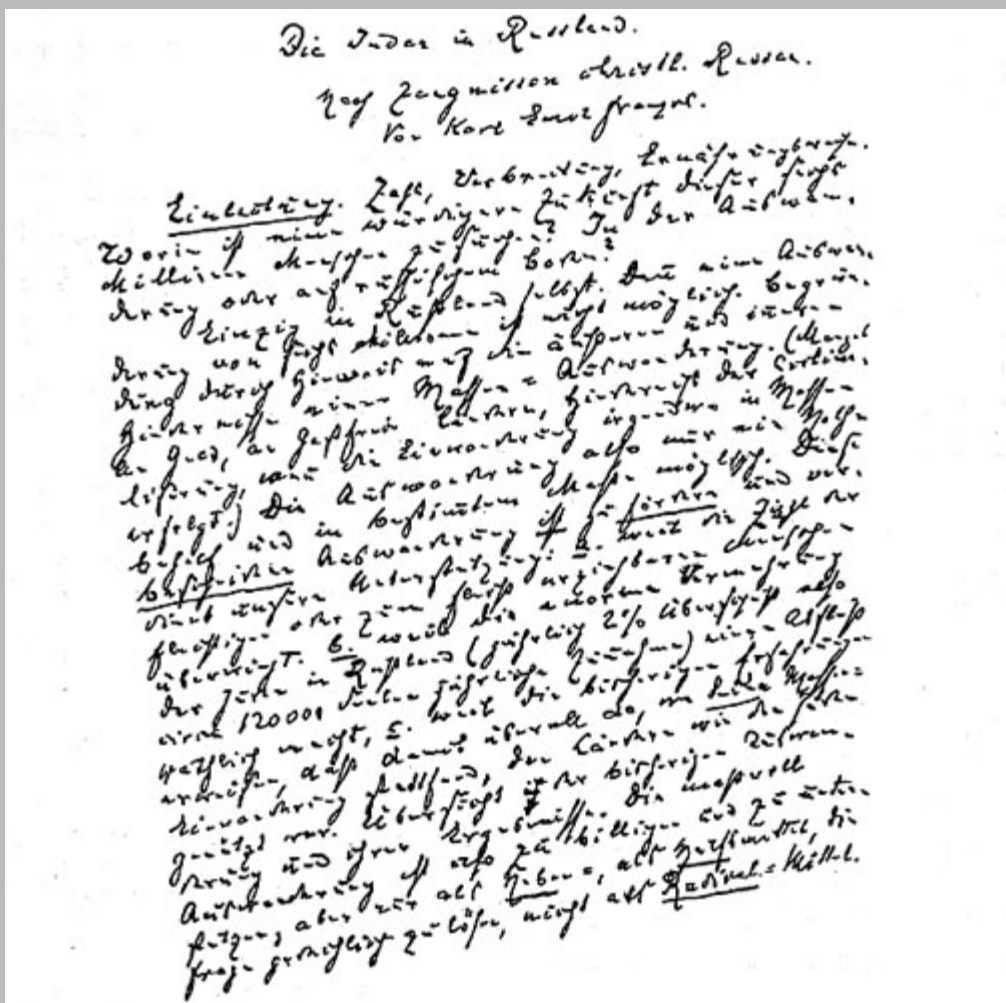 Die Juden in Russland.
Nach Zeugnissen christl. Russen.
Von Karl Emil Franzos.
Einleitung. Zahl, Verbreitung, Ernährungsweise.
Worin ist eine würdigere Zukunft dieser sechs
Millionen Menschen zu suchen? In der Auswan-
derung oder auf russischem Boden?
Einzig in Rußland selbst. Denn eine Auswan-
derung von sechs Millionen ist nicht möglich. Begrün-
dung durch Hinweis auf die äußeren und inneren
Hindernisse einer Massen-Auswanderung. (Mangel
an Geld, an gastfreien Ländern, Hinderniß der
lisirung, wenn die Einwanderung irgendwo in Massen
erfolgt.) Die Auswanderung also nur ein Nothe
behelf und in bestimmtem Maße möglich. Diese
beschränkte Auswanderung ist zu fördern und ver-
dient unsere Unterstützung: a. weil die Zahl der
fleißigen oder zum Fleiß erziehbaren Menschen
überwiegt. b. weil die enorme Vermehrung
der Juden in Rußland (jährlich 2% Überschuß also
circa 120000 Seelen jährliche Zunahme) einen Abfluß
räthlich macht, c. weil die bisherigen Erfahrungen
erweisen, daß damit überall da, wo keine Massen
Einwanderung stattfand, den Ländern wie den Juden
genützt war. Übersicht der bisherigen Auswan-
derung und ihrer Ergebnisse. Die maßvolle
Auswanderung ist also zu billigen und zu unter-
stützen, aber nur als Neben-, als Hilfsmittel, die
Frage gedeihlich zu lösen, nicht als Radical-Mittel.